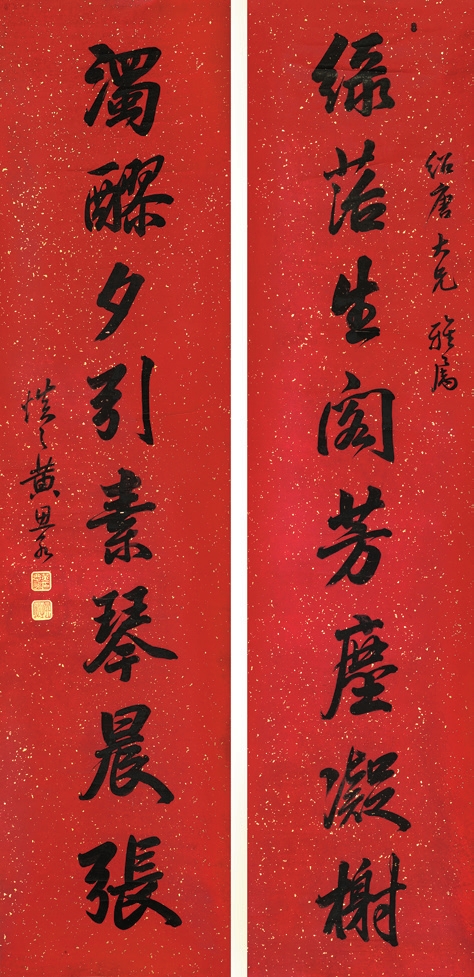 紹唐大兄雅屬
綠菭生閣芳塵凝榭
濁醪夕引素琴晨張
慎之黃思永